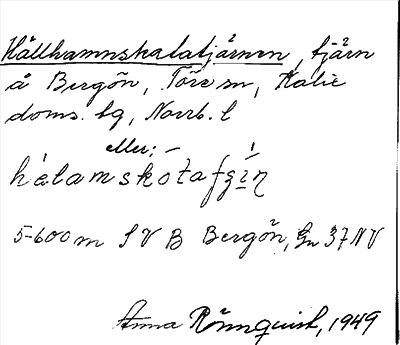 Hållhamnskalatjärnen, tjärn
å Bergön, Töre sn, Kalix
doms. tg, Norrb. l
eller: –
5-600 m SV B Bergön, Gn 37 NV
Anna Rönnquist, 1949